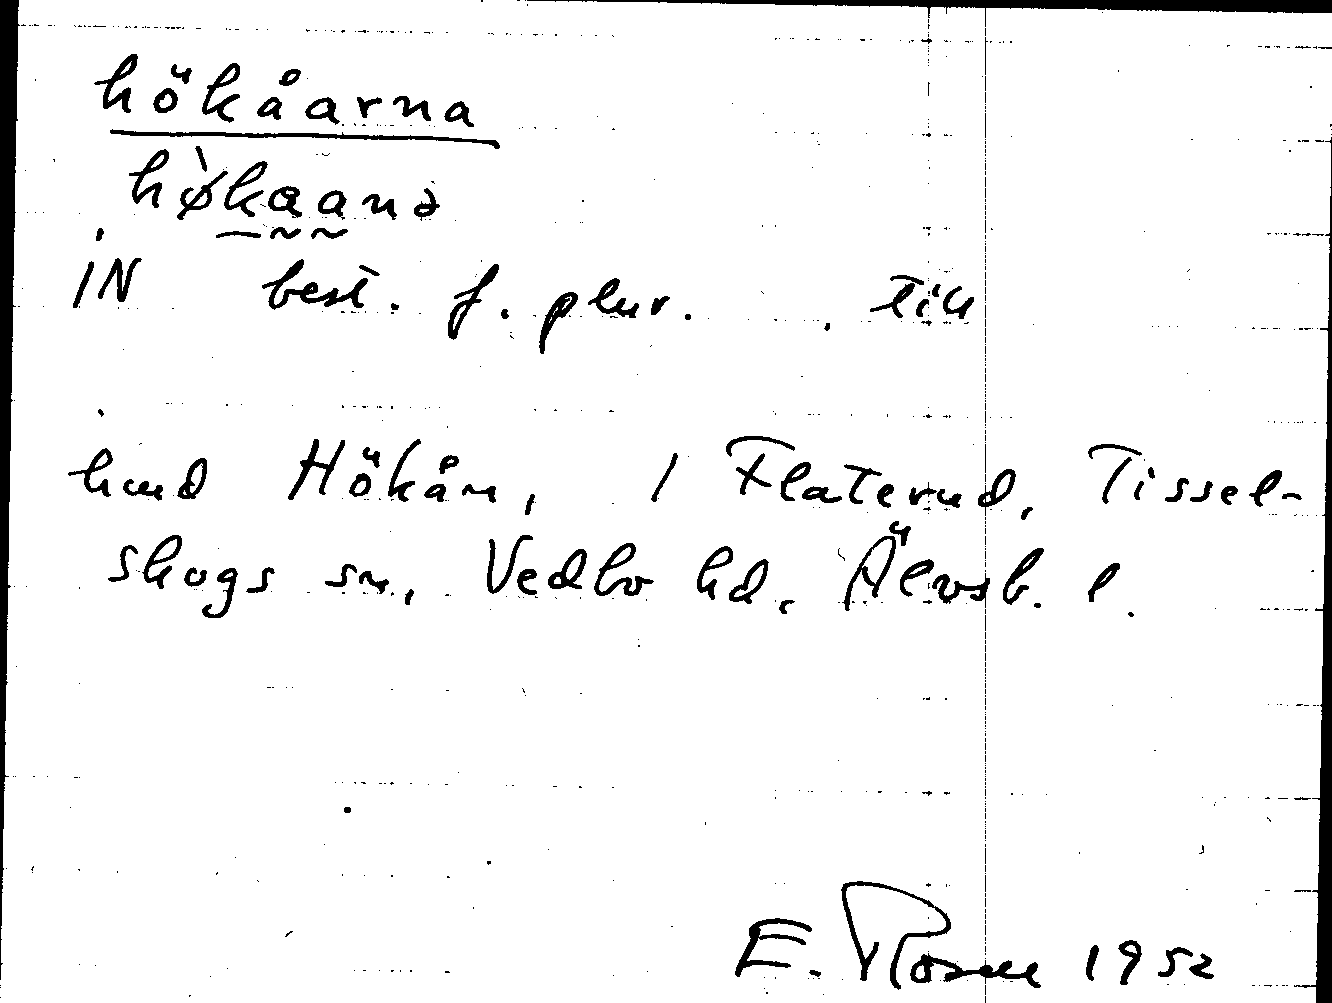 hökåarna
hø̀kaanə
IN best. f. plur. till
hmd Hökån, 1 Flaterud, Tissel-
skogs sn, Vedbo hd, Älvsb. l.
E. Rosell 1952